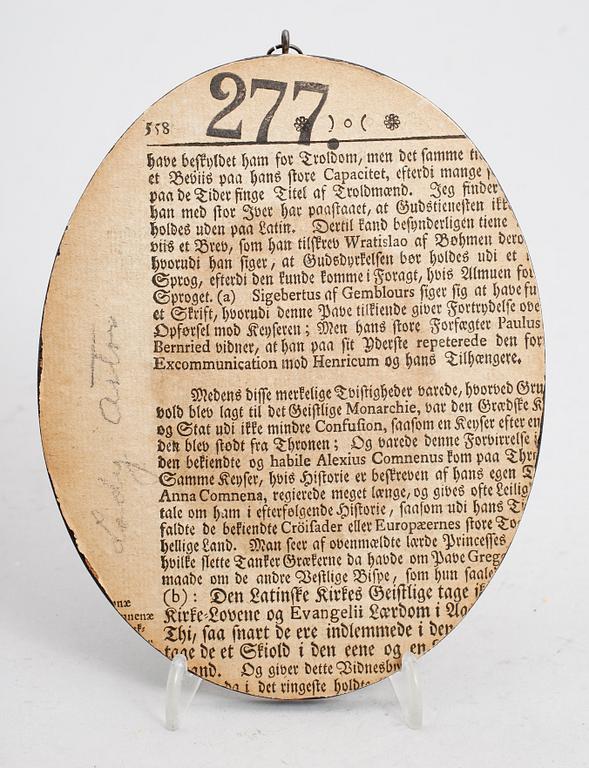 277.
558 ) o (
have beskyldet ham for Troldom, men det samme
et Beviis paa hans store Capacitet, efterdi mange
paa de Tider finge Titel af Troldmænd. Jeg finder
han med stor Iver har paastaaet, at Gudstienesten ikk
holdes uden paa Latin. Dertil kand besynderligen tiene
viis et Brev, som han tilskrev Wratislao af Bøhmen dero
hvorudi han siger, at Gudsdyrkelsen bør holdes udi et
Sprog, efterdi den kunde komme i Foragt, hvis Almuen for
Sproget. (a) Sigebertus af Gemblours siger sig at have fu
et Skrift, hvorudi denne Pave tilkiende giver Fortrydelse ove
Opførsel mod Keyseren; Men hans store Forfægter Paulus
Bernried vidner, at han paa sit Yderste repeterede den for
Excommunication mod Henricum og hans Tilhængere.
Medens disse merkelige Tvistigheder varede, hvorved Gru
vold blev lagt til det Geistlige Monarchie, var den Grædske K
og Stat udi ikke mindre Confusion, saasom en Keyser efter en
den blev stødt fra Thronen; Og varede denne Forvirrelse
den bekiendte og habile Alexius Comnenus kom paa Thr
Samme Keyser, hvis Historie er beskreven af hans egen D
Anna Comnena, regierede meget længe, og gives ofte Leilig
tale om ham i efterfølgende Historie, saasom udi hans T
faldte de bekiendte Cröisader eller Europæernes store To
hellige Land. Man seer af ovenmældte lærde Princesses
hvilke slette Tanker Grækerne da havde om Pave Greg
maade om de andre Vestlige Bispe, som hun saale
(b): Den Latinske Kirkes Geistlige tage ik
Kirke-Lovene og Evangelii Lærdom i Ag
Thi, saa snart de ere indlemmede i den
tage de et Skiold i den eene og en
and. Og giver dette Vidnesby
da i det ringeste holdt
Lady Astor